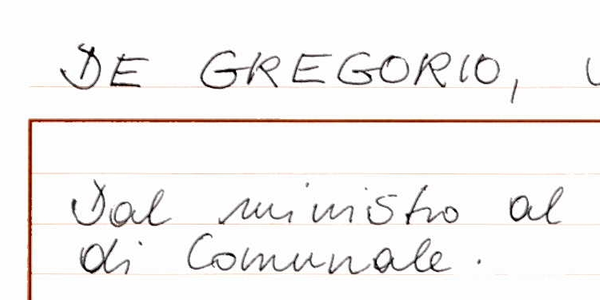 DE GREGORIO,
Dal ministro al
di Comunale.